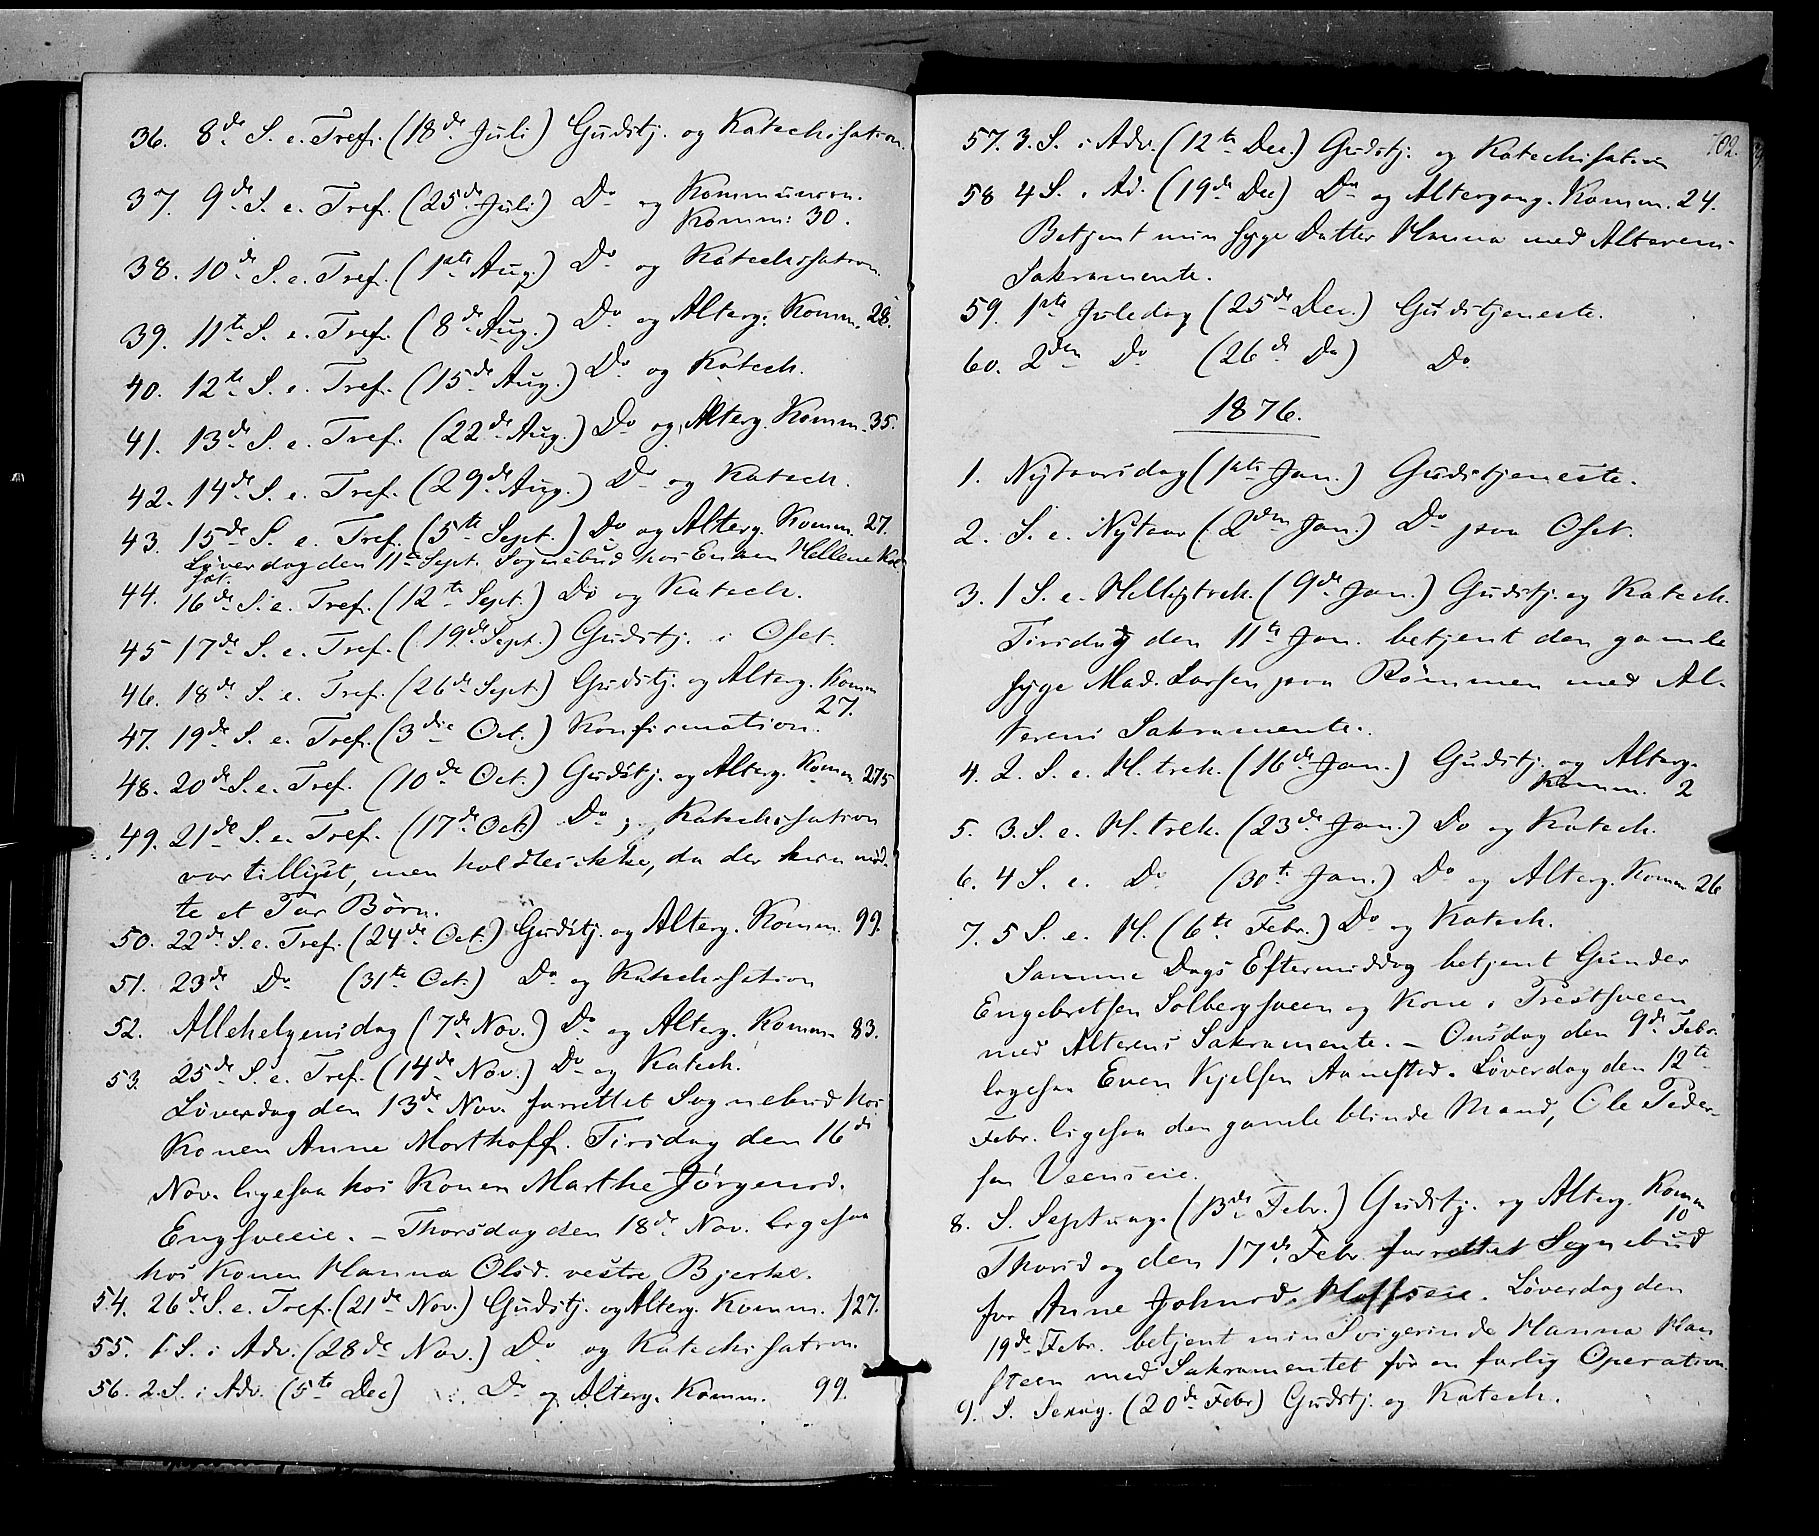 36. 8de S. e. Tref. (18de Juli) Gudstj. og Katechisation.
37. 9de S. e. Tref. (25de Juli) Do og Kommunion.
Komm: 30.
38. 10de S. e. Tref. (1ste Aug.) Do og Katechisation.
39. 11te S. e. Tref. (8de Aug.) Do og Alterg. Komm. 28.
40. 12te S. e. Tref. (15de Aug.) Do og Katech.
41. 13de S. e. Tref. (22de Aug.) Do og Alterg. Komm. 35.
42. 14de S. e. Tref. (29de Aug.) Do og Katech.
43. 15de S. e. Tref. (5te Sept.) Do og Alterg. Komm. 27.
Løverdag den 11te Sept. Sognebud hos Enken Hellene
44. 16de S. e. Tref. (12te Sept.) Do og Katech.
45 17de S. e. Tref. (19de Sept.) Gudstj. i Oset.
46. 18de S. e. Tref. (26de Sept.) Gudstj. og Alterg. Komm
27.
47. 19de S. e. Tref. (3die Oct.) Konfirmation.
48. 20de S. e. Tref. (10de Oct.) Gudstj. og Alterg. Komm 275
49. 21de S. e. Tref. (17de Oct.) Do, Katechisation
var tillyst, men holdtes ikke, da der kun mød-
te et Par Børn.
50. 22de S. e. Tref. (24de Oct.) Gudstj. og Alterg. Komm. 99.
51. 23de Do (31te Oct.) Do og Katechisation
52. Allehelgensdag (7de Nov.) Do og Alterg. Komm 83.
53. 25de S. e. Tref. (14de Nov.) Do og Katech.
Løverdag den 13de Nov. forrettet Sognebud hos
Konen Anne Morthoff. Tirsdag den 16de
Nov. ligesaa hos Konen Marthe Jørgensd.
Engsveeie. – Thorsdag den 18de Nov. ligesaa
hos Konen Hanna Olsd. vestre Bjerke.
54. 26de S. e. Tref. (21de Nov.) Gudstj. og Alterg. Komm. 127.
55. 1 S. i Adv. (28de Nov.) Do og Katechisation.
56. 2. S. i Adv. (5te Dec) Do og Alterg. Komm. 99.
102.
57. 3. S. i Adv. (12te Dec.) Gudstj. og Katechisation
58 4 S. i Ad. (19de Dec) Do og Altergang. Komm. 24.
Betjent min syge Datter Hanna med Alterens
Sakramente.
59. 1ste Juledag (25de Dec.) Gudstjeneste.
60. 2den Do (26de Do) Do
1876.
1. Nytaarsdag (1ste Jan.) Gudstjeneste.
2. S. e. Nytaar (2den Jan.) Do paa Oset.
3. 1 S. e. Helligtrek. (9de Jan.) Gudstj. og Katech.
Tirsdag den 11te Jan. betjent den gamle
syge Mad. Larsen paa Rømmen med Al-
terens Sakramente.
4. 2. S. e. H. trek. (16de Jan.) Gudstj. og Alterg.
Komm. 2
5. 3. S. e. H. trek. (23de Jan.) Do og Katech.
6. 4 S. e. Do (30te Jan.) Do og Alterg. Komm 26
7. 5 S. e. H. (6te Febr.) Do og Katech.
Samme Dags Eftermiddag betjent Gunder
Engebretsen Solbergsveen og Kone i Trestsveen
med Alterens Sakramente. – Onsdag den 9de Febr.
ligesaa Even Kjelsen Aanestad. Løverdag den 12te
Febr. ligesaa den gamle blinde Mand, Ole Peder-
sen Veenseie.
8. S. Septuag. (13de Febr.) Gudstj. og Alterg. Komm
10
Thorsdag den 17de Febr. forrettet Sognebud
for Anne Johnsd. Hoffseie. Løverdag den
19de Febr. betjent min Svigerinde Hanna Han
steen med Sakramentet før en farlig Operation.
9. S. Sexag. (20de Febr) Gudstj. og Katech.